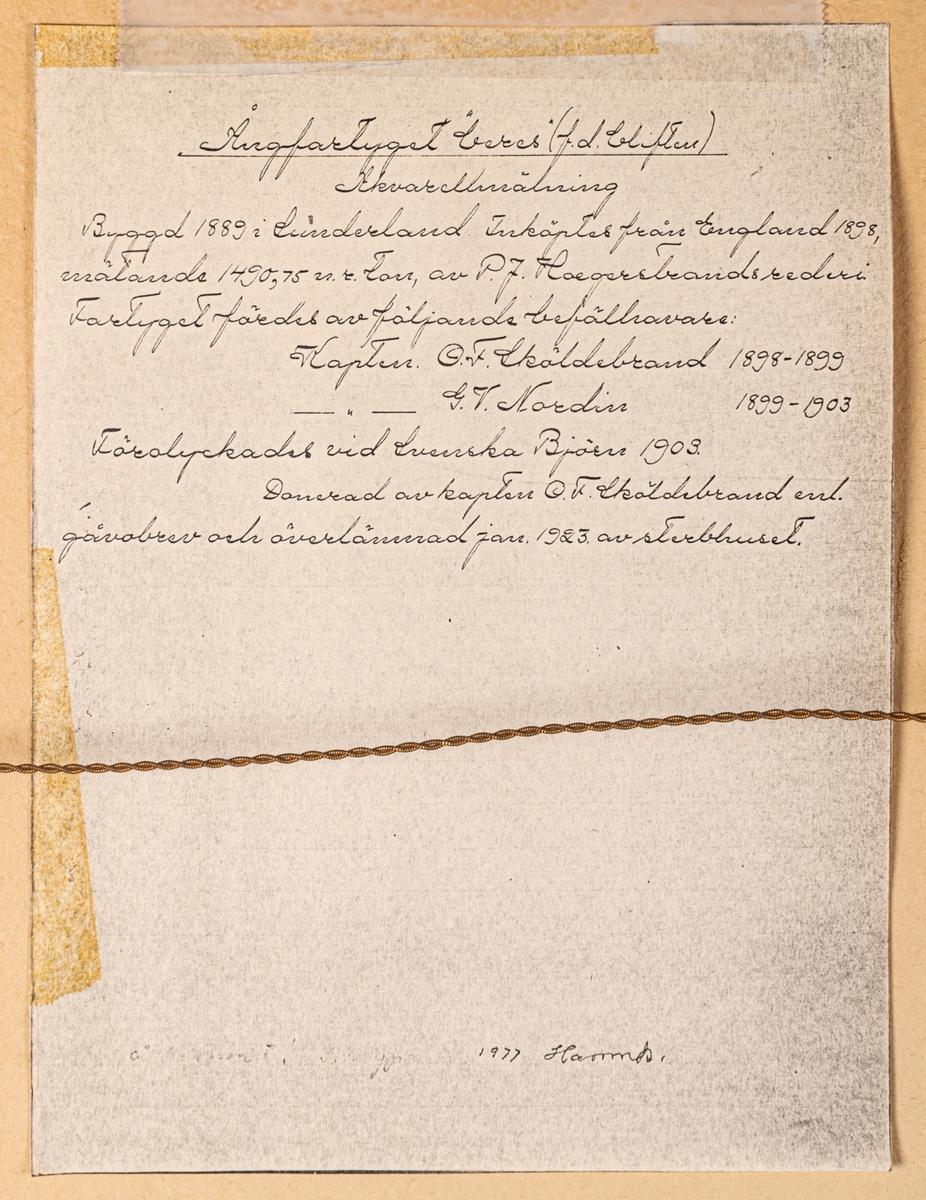 Ångfartyget "Ceres" (f.d. Cliften)
Akvarellmålning
Byggd 1889 i Sunderland. Inköptes från England 1898,
mätande 1490,75 n.r. ton, av P.J. Haegerstrands rederi.
Fartyget fördes av följande befälhavare:
Kapten. O.F. Sköldebrand 1898-1899
— " — G.V. Nordin 1899-1903
Förolyckades vid Svenska Björn 1903.
Donerad av kapten O.F. Sköldebrand enl.
gåvobrev och överlämnad jan. 1923. av sterbhuset.
1977